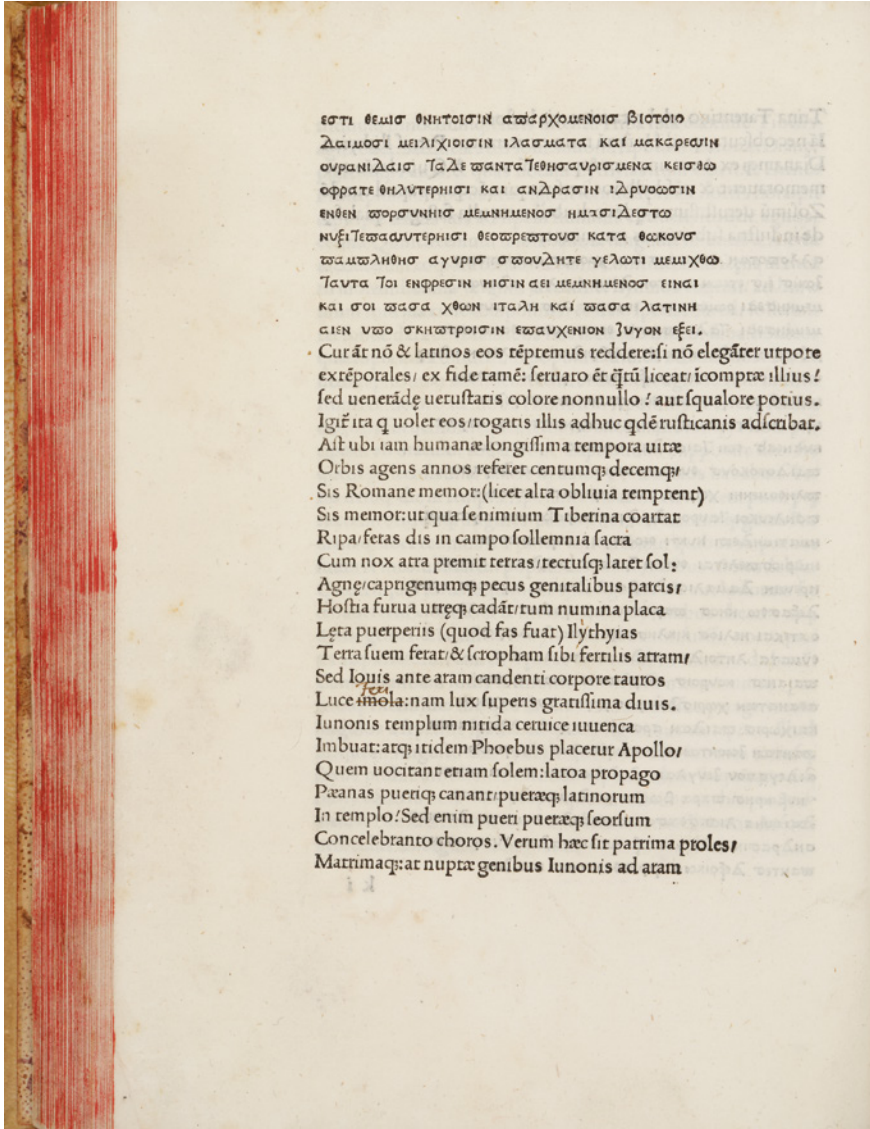 εστι θεμισ θνητοισιν απαρχομενοισ βιοτοιο
Δαιμοσι μειλιχιοισιν ιλασματα και μακαρεσσιν
ουρανιΔαισ ΤαΔε παντα Τεθησαυρισμενα κεισθω
οφρατε θηλυτερηισι και ανΔρασιν ιΔρυοωσιν
ενθεν πορσυνηισ μεμνημενοσ ημασιΔεστω
νυξιΤεπασσυτερηισι θεοπρεπτουσ κατα θωκουσ
παμπληθησ αγυρισ σπουΔητε γελωτι μεμιχθω
Ταυτα Τοι ενφρεσιν ηισιν αει μεμνημενοσ ειναι
και σοι πασα χθων ιταλη καί πασα λατινη
αιεν υπο σκηπτροισιν επαυχενιον ζυγον εξει.
Cur āt nō & latinos eos tēptemus reddere:ſi nō elegāter utpote
extēporales/ ex fide tamē: ſeruato ēt q̄tū liceat/ īcomptæ illius!
ſed uenerādę uetuſtatis colore nonnullo ! aut ſqualore potius.
Igit̄ ita q̨ uolet eos/rogatis illis adhuc qdē ruſticanis adſcribat.
Aſt ubi iam humanæ longiſſima tempora uitæ
Orbis agens annos referet centumq; decemq;/
Sis Romane memor:(licet alta obliuia temptent)
Sis memor:ut qua ſe nimium Tiberina coartat
Ripa/feras dis in campo ſollemnia ſacra
Cum nox atra premit terras/tectuſq; latet ſol:
Agnę/caprigenumq; pecus genitalibus parcis/
Hoſtia furua utręq; cadāt/tum numina placa
Lęta puerperiis (quod fas fuat) Ilythyias
Terra ſuem ferat/& ſcropham ſibi fertilis atram/
Sed Iouis ante aram candenti corpore tauros
feri
Luce imola:nam lux ſuperis gratiſſima diuis.
Iunonis templum nitida ceruice iuuenca
Imbuat:atq; itidem Phoebus placetur Apollo/
Quem uocitant etiam ſolem:latoa propago
Pæanas pueriq; canant/pueræq; latinorum
In templo!Sed enim pueri pueræq; ſeorſum
Concelebranto choros. Verum hæc ſit patrima proles/
Matrimaq;:at nuptæ genibus Iunonis ad aram